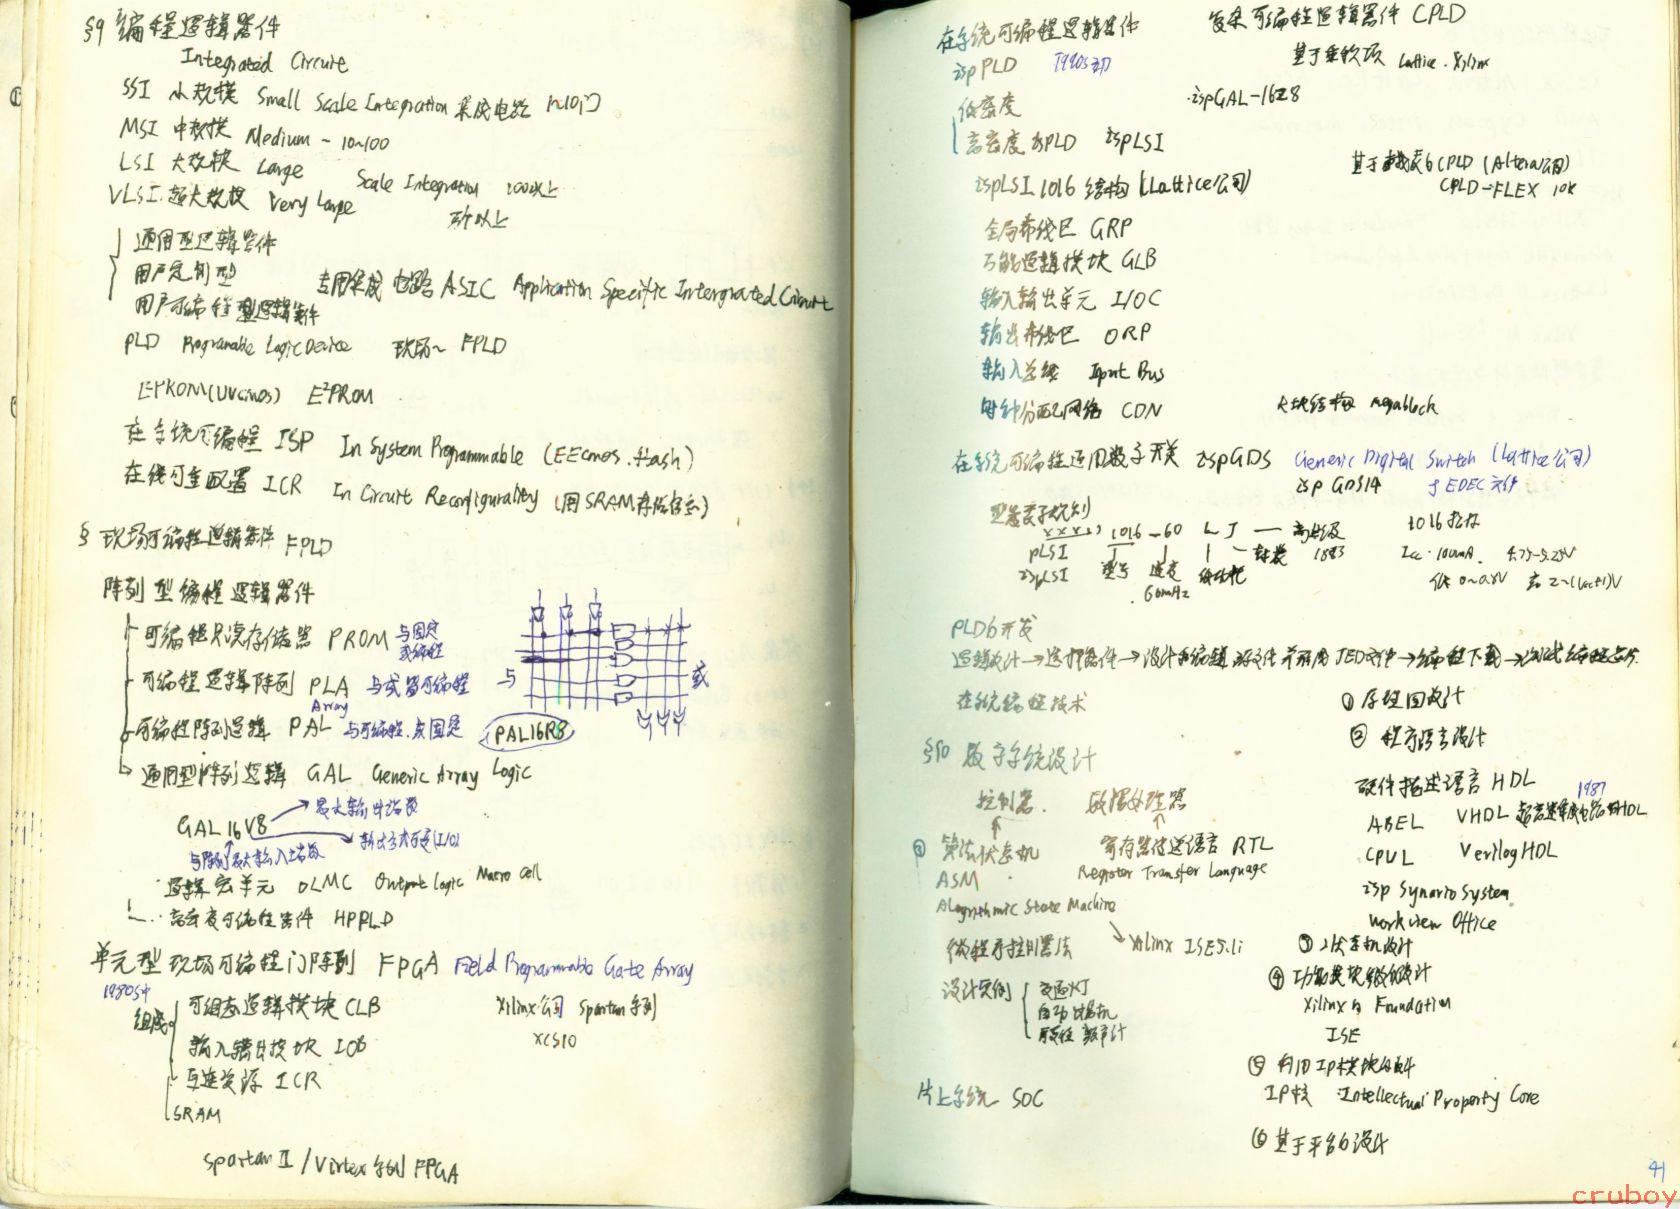 §9 编程逻辑器件
Integrated Circuit
SSI 小规模 Small Scale Integration 集成电路 1~10门
MSI 中规模 Medium ~ 10~100
LSI 大规模 Large Scale Integration 100以上
VLSI 超大规模 Very Large 万个以上
通用型逻辑器件
用户定制型 专用集成电路 ASIC Application Specific Intergrated Circuit
用户可编程型逻辑器件
PLD Programable Logic Device 现场~ FPLD
EPROM(UVcmos) E²PROM
在系统可编程 ISP In System Programmable (EEcmos.flash)
在线可重配置 ICR In Circuit Reconfigurality (用SRAM存储信息)
§ 现场可编程逻辑器件 FPLD
阵列型编程逻辑器件
可编程只读存储器 PROM 与固定 或编程
可编程逻辑阵列 PLA 与或皆可编程
Array
与 或
可编程阵列逻辑 PAL 与可编程.或固定 PAL16R8
通用型阵列逻辑 GAL Generic Array Logic
GAL16V8 最大输出端数
输出方式可变(I/O)
与阵列最大输入端数
逻辑宏单元 OLMC Output Logic Macro Cell
高密度可编程器件 HPPLD
单元型现场可编程门阵列 FPGA Field Programmable Gate Array
1980s中
组成 可组态逻辑模块 CLB Xilinx公司 Spartan系列
输入输出模块 IOB XCS10
互连资源 ICR
SRAM
Spartan II / Virtex系列 FPGA
在系统可编程逻辑器件 复杂可编程逻辑器件 CPLD
ispPLD 1990s初 基于乘积项 Lattice . Xilinx
低密度 ispGAL-16Z8
高密度 isPLD ispLSI
基于查找表的CPLD (Altera公司)
CPLD-FLEX 10K
ispLSI 1016 结构 (Lattice公司)
全局布线区 GRP
万能逻辑模块 GLB
输入输出单元 I/OC
输出布线区 ORP
输入总线 Input Bus
时钟分配网络 CDN 大块结构 megablock
在系统可编程通用数字开关 ispGDS Generic Digital Switch (Lattice公司)
isp GDS14 JEDEC文件
xxxxx 1016 -60 L J
pLSI 型号 速度 低功耗 封装 1883
ispLSI 60mHz
Icc.100mA. 4.75-5.25V
低0~0.8V 高2~(Vcc+1)V
PLD的开发
逻辑设计→选择器件→设计和编辑源文件并形成JED文件→编程下载→测试编程芯片
在系统编程技术 ① 原理图设计
② 程序语言设计
§10 数字系统设计
控制器. 数据处理器
硬件描述语言 HDL
1987
ABEL VHDL
CPUL Verilog HDL
isp Synario System
Workview Office
① 算法状态机 寄存器传送语言 RTL
ASM Register Transfer Language
Alogrithmic State Machine
微程序控制器法 Xilinx ISE5.1i
设计实例 交通灯
③ 状态机设计
④ 功能模块级设计
Xilinx的 Foundation
ISE
⑤ 利用IP模块的设计
IP核 Intellectual Property Core
⑥ 基于平台的设计
片上系统 SOC
41
cruboy